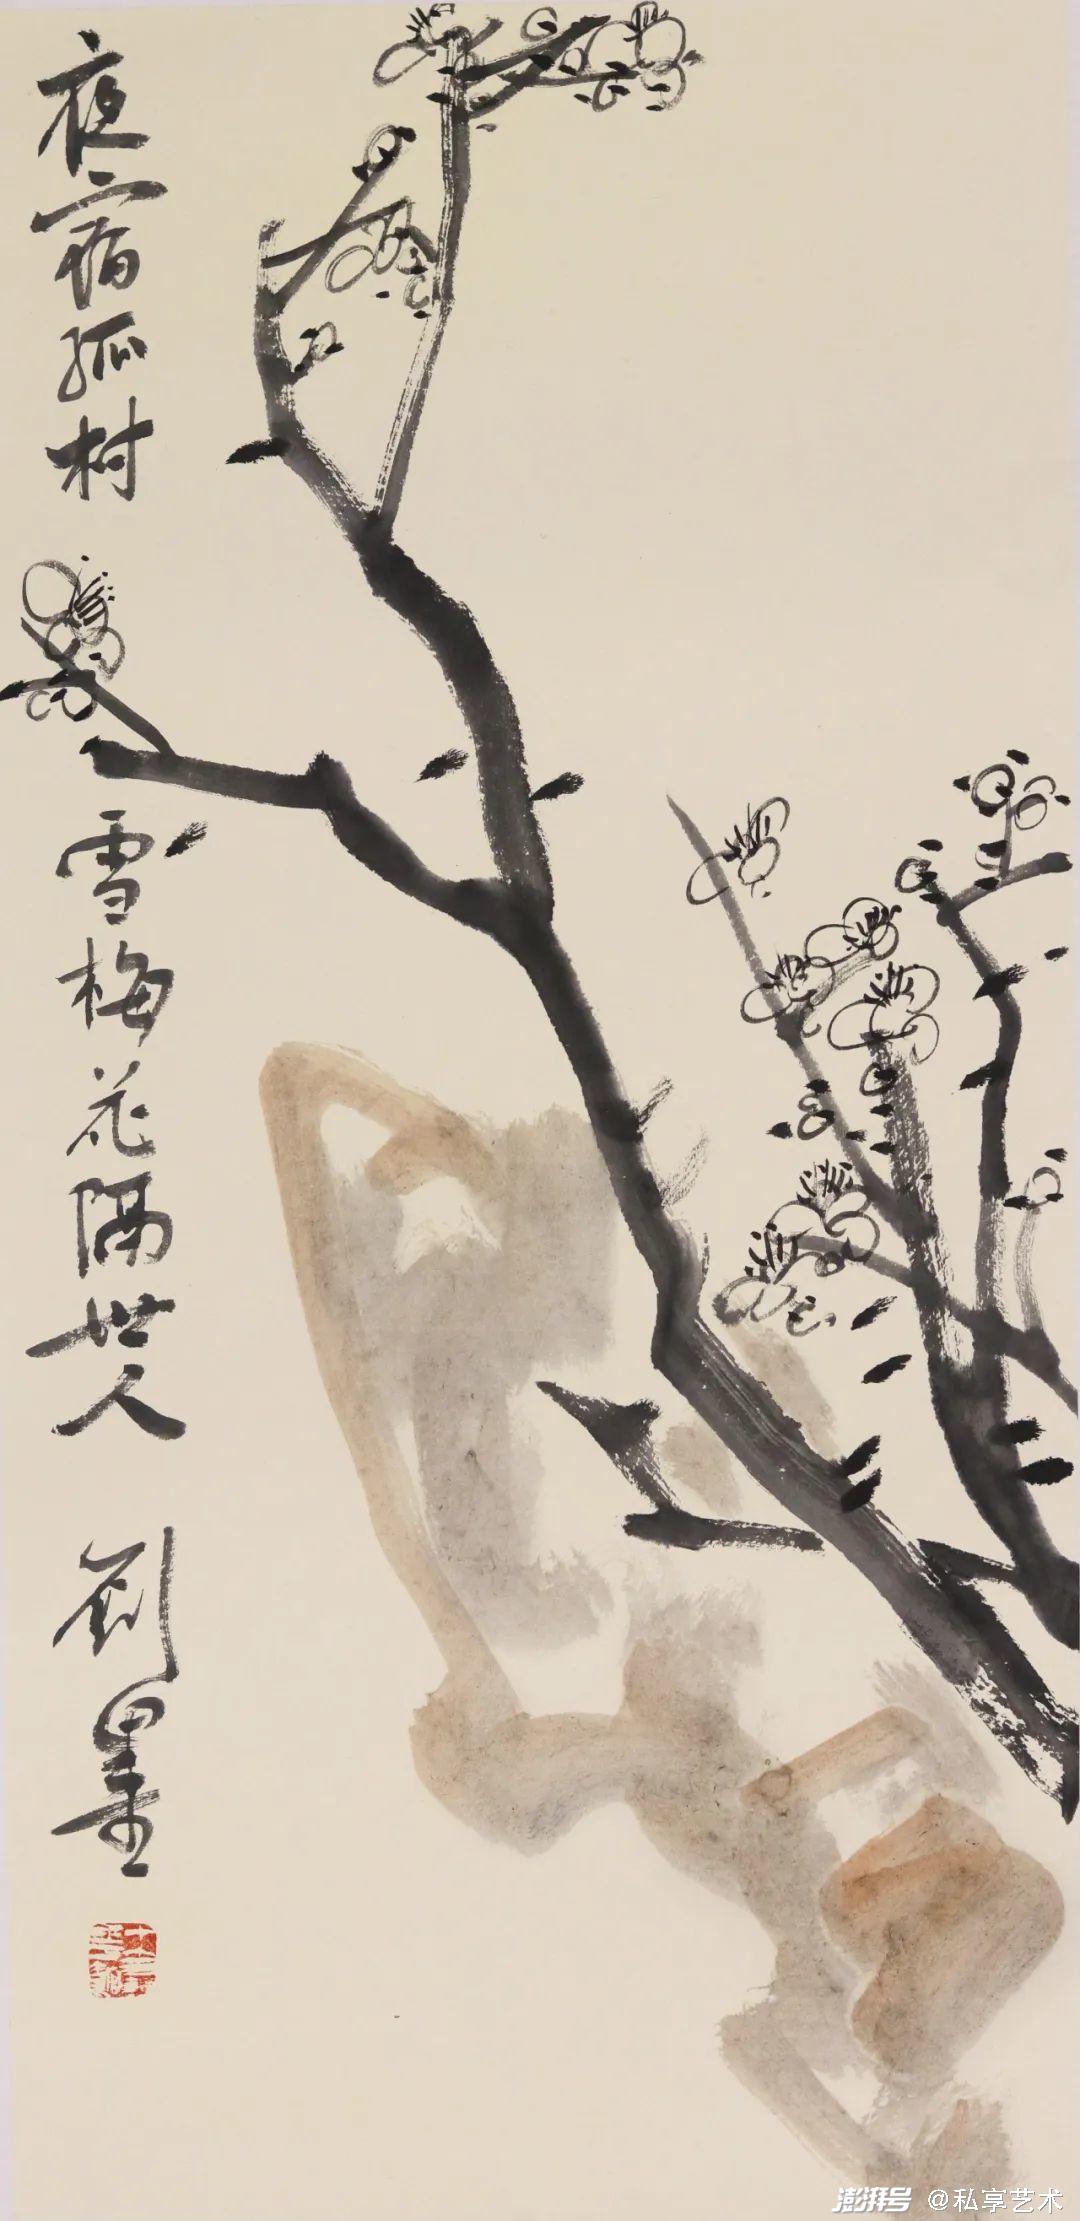 夜宿孤村
雪梅花隔世人
刘墨
澎湃号 @私享艺术